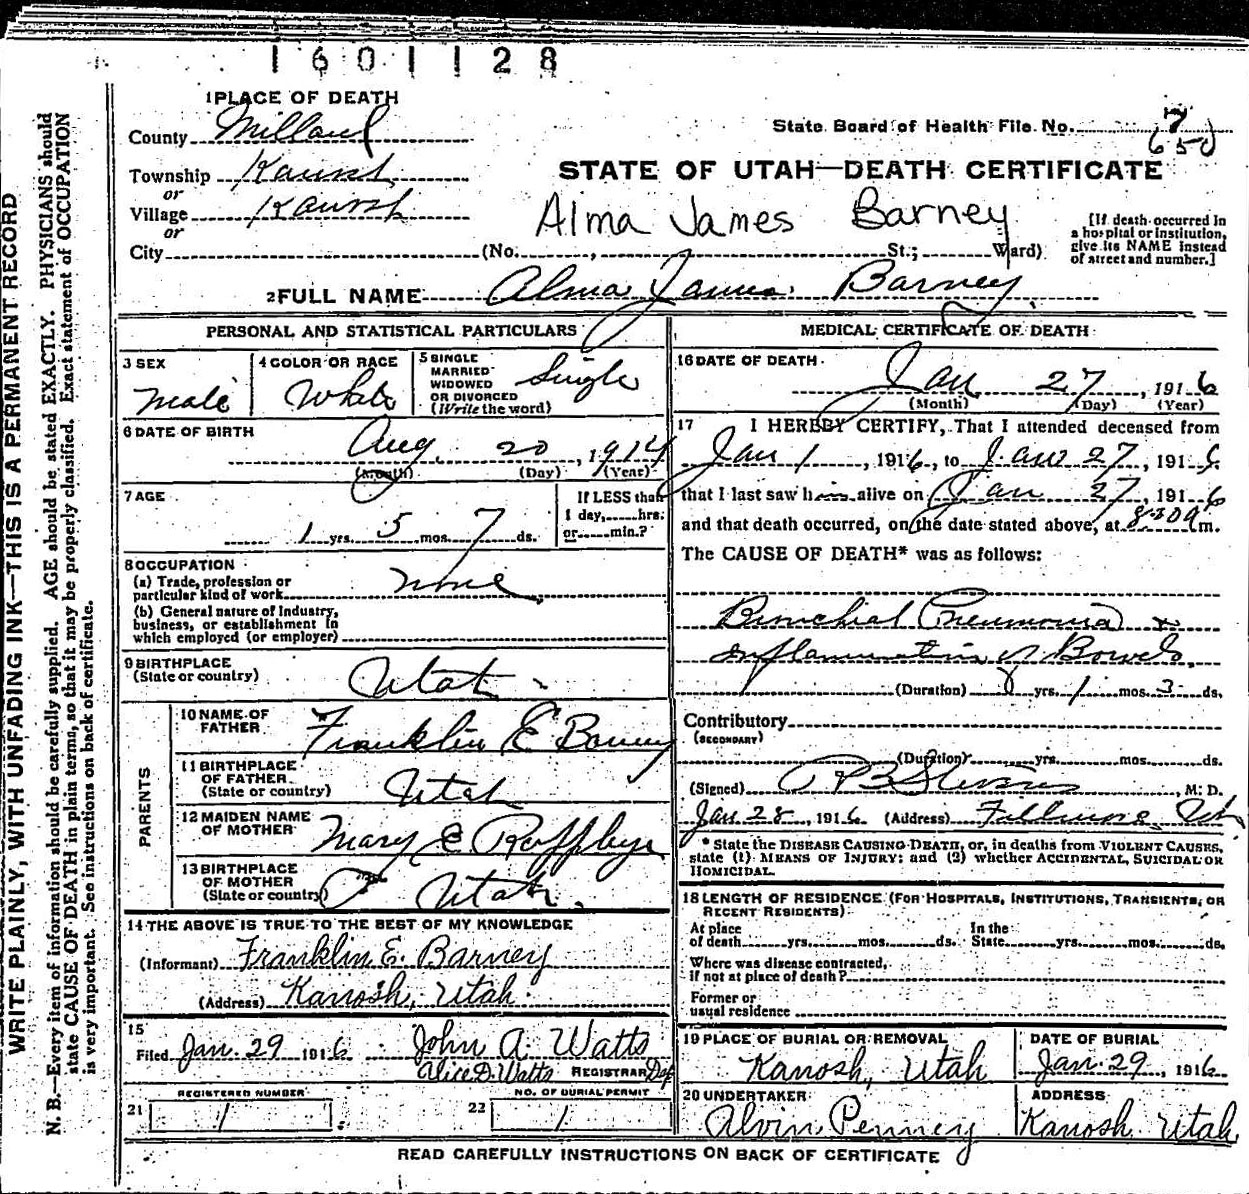 1601128
1 PLACE OF DEATH
County Millard
State Board of Health File No. 7
650
Township Kanosh
or
Village Kanosh
or
STATE OF UTAH—DEATH CERTIFICATE
Alma James Barney
City (No. , St.; Ward)
[If death occurred in a hospital or institution, give its NAME instead of street and number.]
2 FULL NAME Alma James Barney
PERSONAL AND STATISTICAL PARTICULARS
3 SEX
Male
4 COLOR OR RACE
White
5 SINGLE MARRIED WIDOWED OR DIVORCED (Write the word)
Single
6 DATE OF BIRTH
Aug. 20, 1914
(Month) (Day) (Year)
7 AGE
1 yrs. 5 mos. 7 ds.
If LESS than 1 day, hrs. or min.?
8 OCCUPATION
(a) Trade, profession or particular kind of work none
(b) General nature of industry, business, or establishment in which employed (or employer)
9 BIRTHPLACE
(State or country) Utah
PARENTS
10 NAME OF FATHER Franklin E Barney
11 BIRTHPLACE OF FATHER (State or country) Utah
12 MAIDEN NAME OF MOTHER Mary E
13 BIRTHPLACE OF MOTHER (State or country) Utah.
14 THE ABOVE IS TRUE TO THE BEST OF MY KNOWLEDGE
(Informant) Franklin E. Barney
(Address) Kanosh, Utah.
15
Filed Jan. 29 1916 John A Watts
Alice D. Watts REGISTRAR Dep
21 REGISTERED NUMBER 1
22 NO. OF BURIAL PERMIT 1
MEDICAL CERTIFICATE OF DEATH
16 DATE OF DEATH
Jan 27, 1916
(Month) (Day) (Year)
17 I HEREBY CERTIFY, That I attended deceased from
Jan 1, 1916, to Jan 27, 1916
that I last saw him alive on Jan 27, 1916
and that death occurred, on the date stated above, at 8:30 a m.
The CAUSE OF DEATH* was as follows:
Bronchial Pneumonia &
inflammation of Bowels.
(Duration) 0 yrs. 1 mos. 3 ds.
Contributory
(SECONDARY)
(Duration) yrs. mos. ds.
(Signed) Stevens, M. D.
Jan. 28, 1916 (Address) Fillmore, Ut
* State the DISEASE CAUSING DEATH, or, in deaths from VIOLENT CAUSES, state (1) MEANS OF INJURY; and (2) whether ACCIDENTAL, SUICIDAL OR HOMICIDAL.
18 LENGTH OF RESIDENCE (FOR HOSPITALS, INSTITUTIONS, TRANSIENTS, OR RECENT RESIDENTS)
At place of death yrs. mos. ds. In the State yrs. mos. ds.
Where was disease contracted, if not at place of death?
Former or usual residence
19 PLACE OF BURIAL OR REMOVAL
Kanosh, Utah
DATE OF BURIAL
Jan. 29, 1916
20 UNDERTAKER
Alvin Penney
ADDRESS
Kanosh Utah
READ CAREFULLY INSTRUCTIONS ON BACK OF CERTIFICATE
WRITE PLAINLY, WITH UNFADING INK—THIS IS A PERMANENT RECORD
N. B.—Every item of information should be carefully supplied. AGE should be stated EXACTLY. PHYSICIANS should
state CAUSE OF DEATH in plain terms, so that it may be properly classified. Exact statement of OCCUPATION
is very important. See instructions on back of certificate.